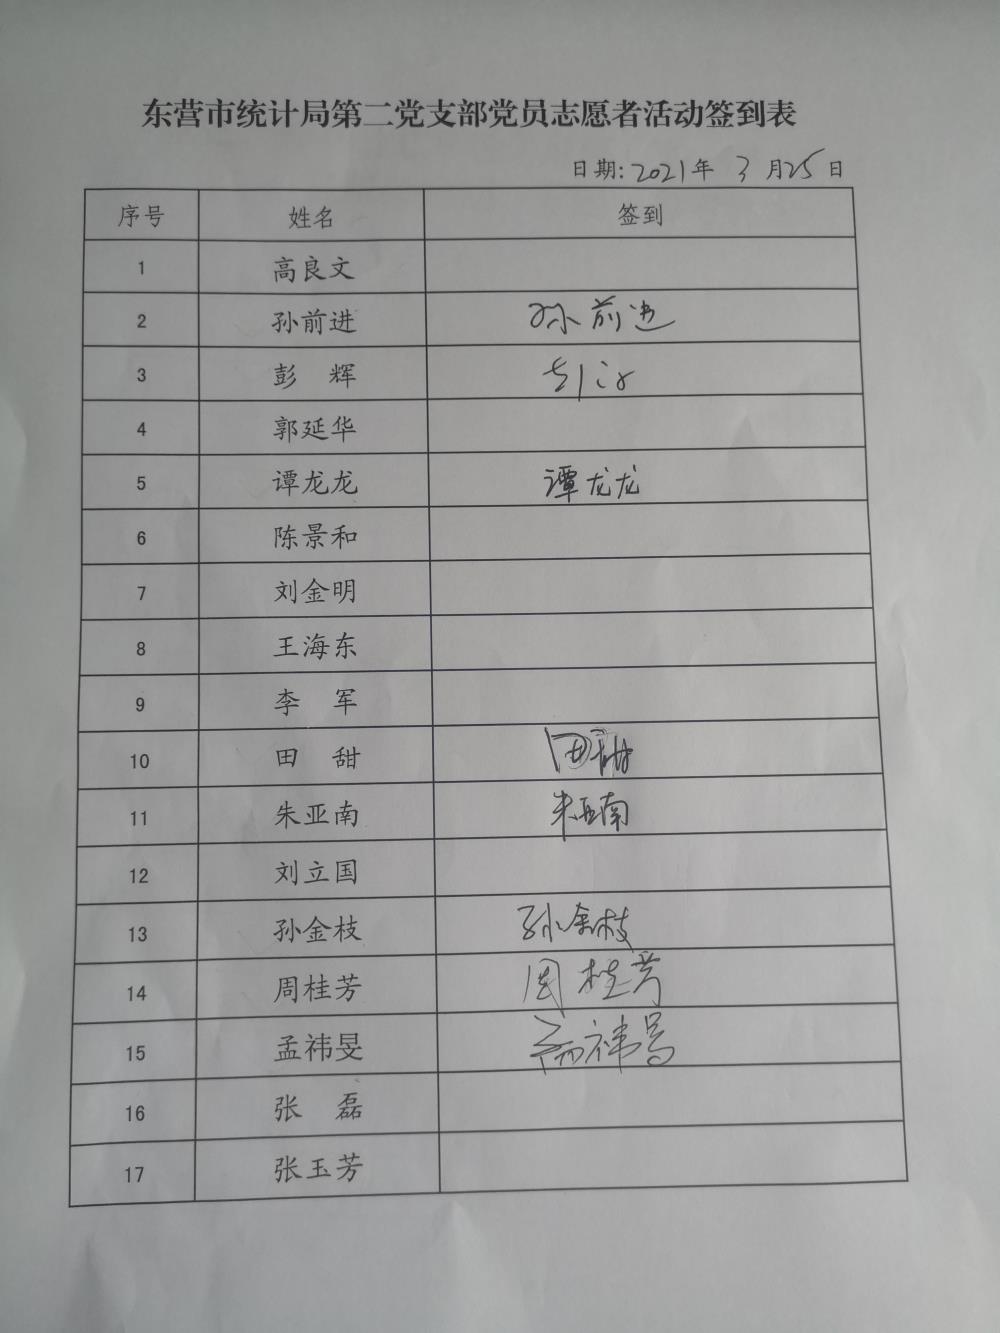 东营市统计局第二党支部党员志愿者活动签到表
日期:2021年 3 月25日
序号 姓名 签到
1 高良文
2 孙前进 孙前进
3 彭 辉
4 郭延华
5 谭龙龙 谭龙龙
6 陈景和
7 刘金明
8 王海东
9 李 军
10 田 甜 田甜
11 朱亚南 朱亚南
12 刘立国
13 孙金枝 孙金枝
14 周桂芳 周桂芳
15 孟祎旻
16 张 磊
17 张玉芳